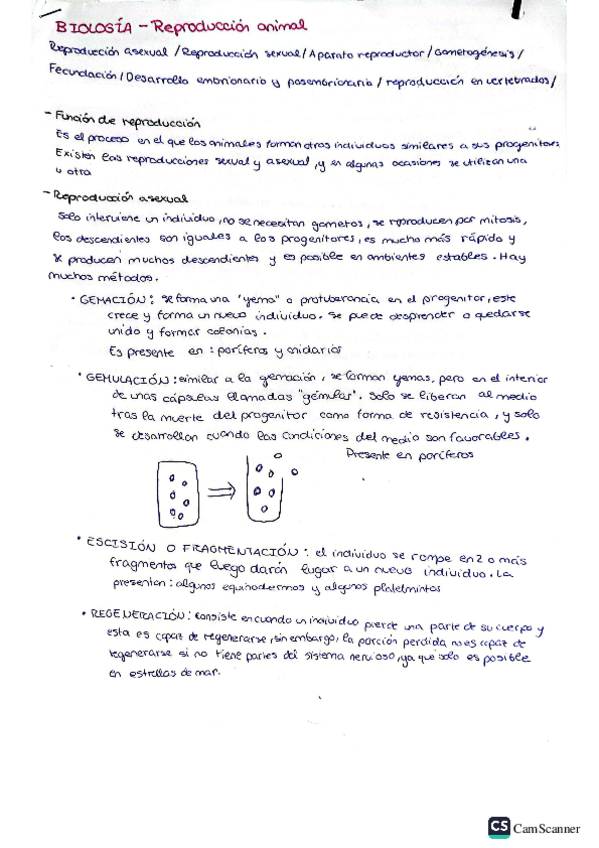 BIOLOGÍA - Reproducción animal
Reproducción asexual / Reproducción sexual / Aparato reproductor / Gametogénesis /
Fecundación / Desarrollo embrionario y posembrionario / reproducción en vertebrados /
- Función de reproducción
Es el proceso en el que los animales forman otros individuos similares a sus progenitores
Existen las reproducciones sexual y asexual, y en algunas ocasiones se utilizan una
u otra
- Reproducción asexual
Solo interviene un individuo, no se necesitan gametos, se reproducen por mitosis,
los descendientes son iguales a los progenitores, es mucho más rápido y
se producen muchos descendientes y es posible en ambientes estables. Hay
muchos métodos.
· GEMACIÓN: se forma una "yema" o protuberancia en el progenitor, este
crece y forma un nuevo individuo. Se puede desprender o quedarse
unido y formar colonias.
Es presente en: poríferos y cnidarios
· GEMULACIÓN: similar a la gemación, se forman yemas, pero en el interior
de unas cápsulas llamadas "gémulas". Solo se liberan al medio
tras la muerte del progenitor como forma de resistencia, y solo
se desarrollan cuando las condiciones del medio son favorables.
Presente en poríferos
· ESCISIÓN O FRAGMENTACIÓN: el individuo se rompe en 2 o más
fragmentos que luego darán lugar a un nuevo individuo. La
presentan: algunos equinodermos y algunos platelmintos
· REGENERACIÓN: consiste en cuando un individuo pierde una parte de su cuerpo y
esta es capaz de regenerarse, sin embargo, la porción perdida no es capaz de
regenerarse si no tiene partes del sistema nervioso, ya que solo es posible
en estrellas de mar.
CS CamScanner